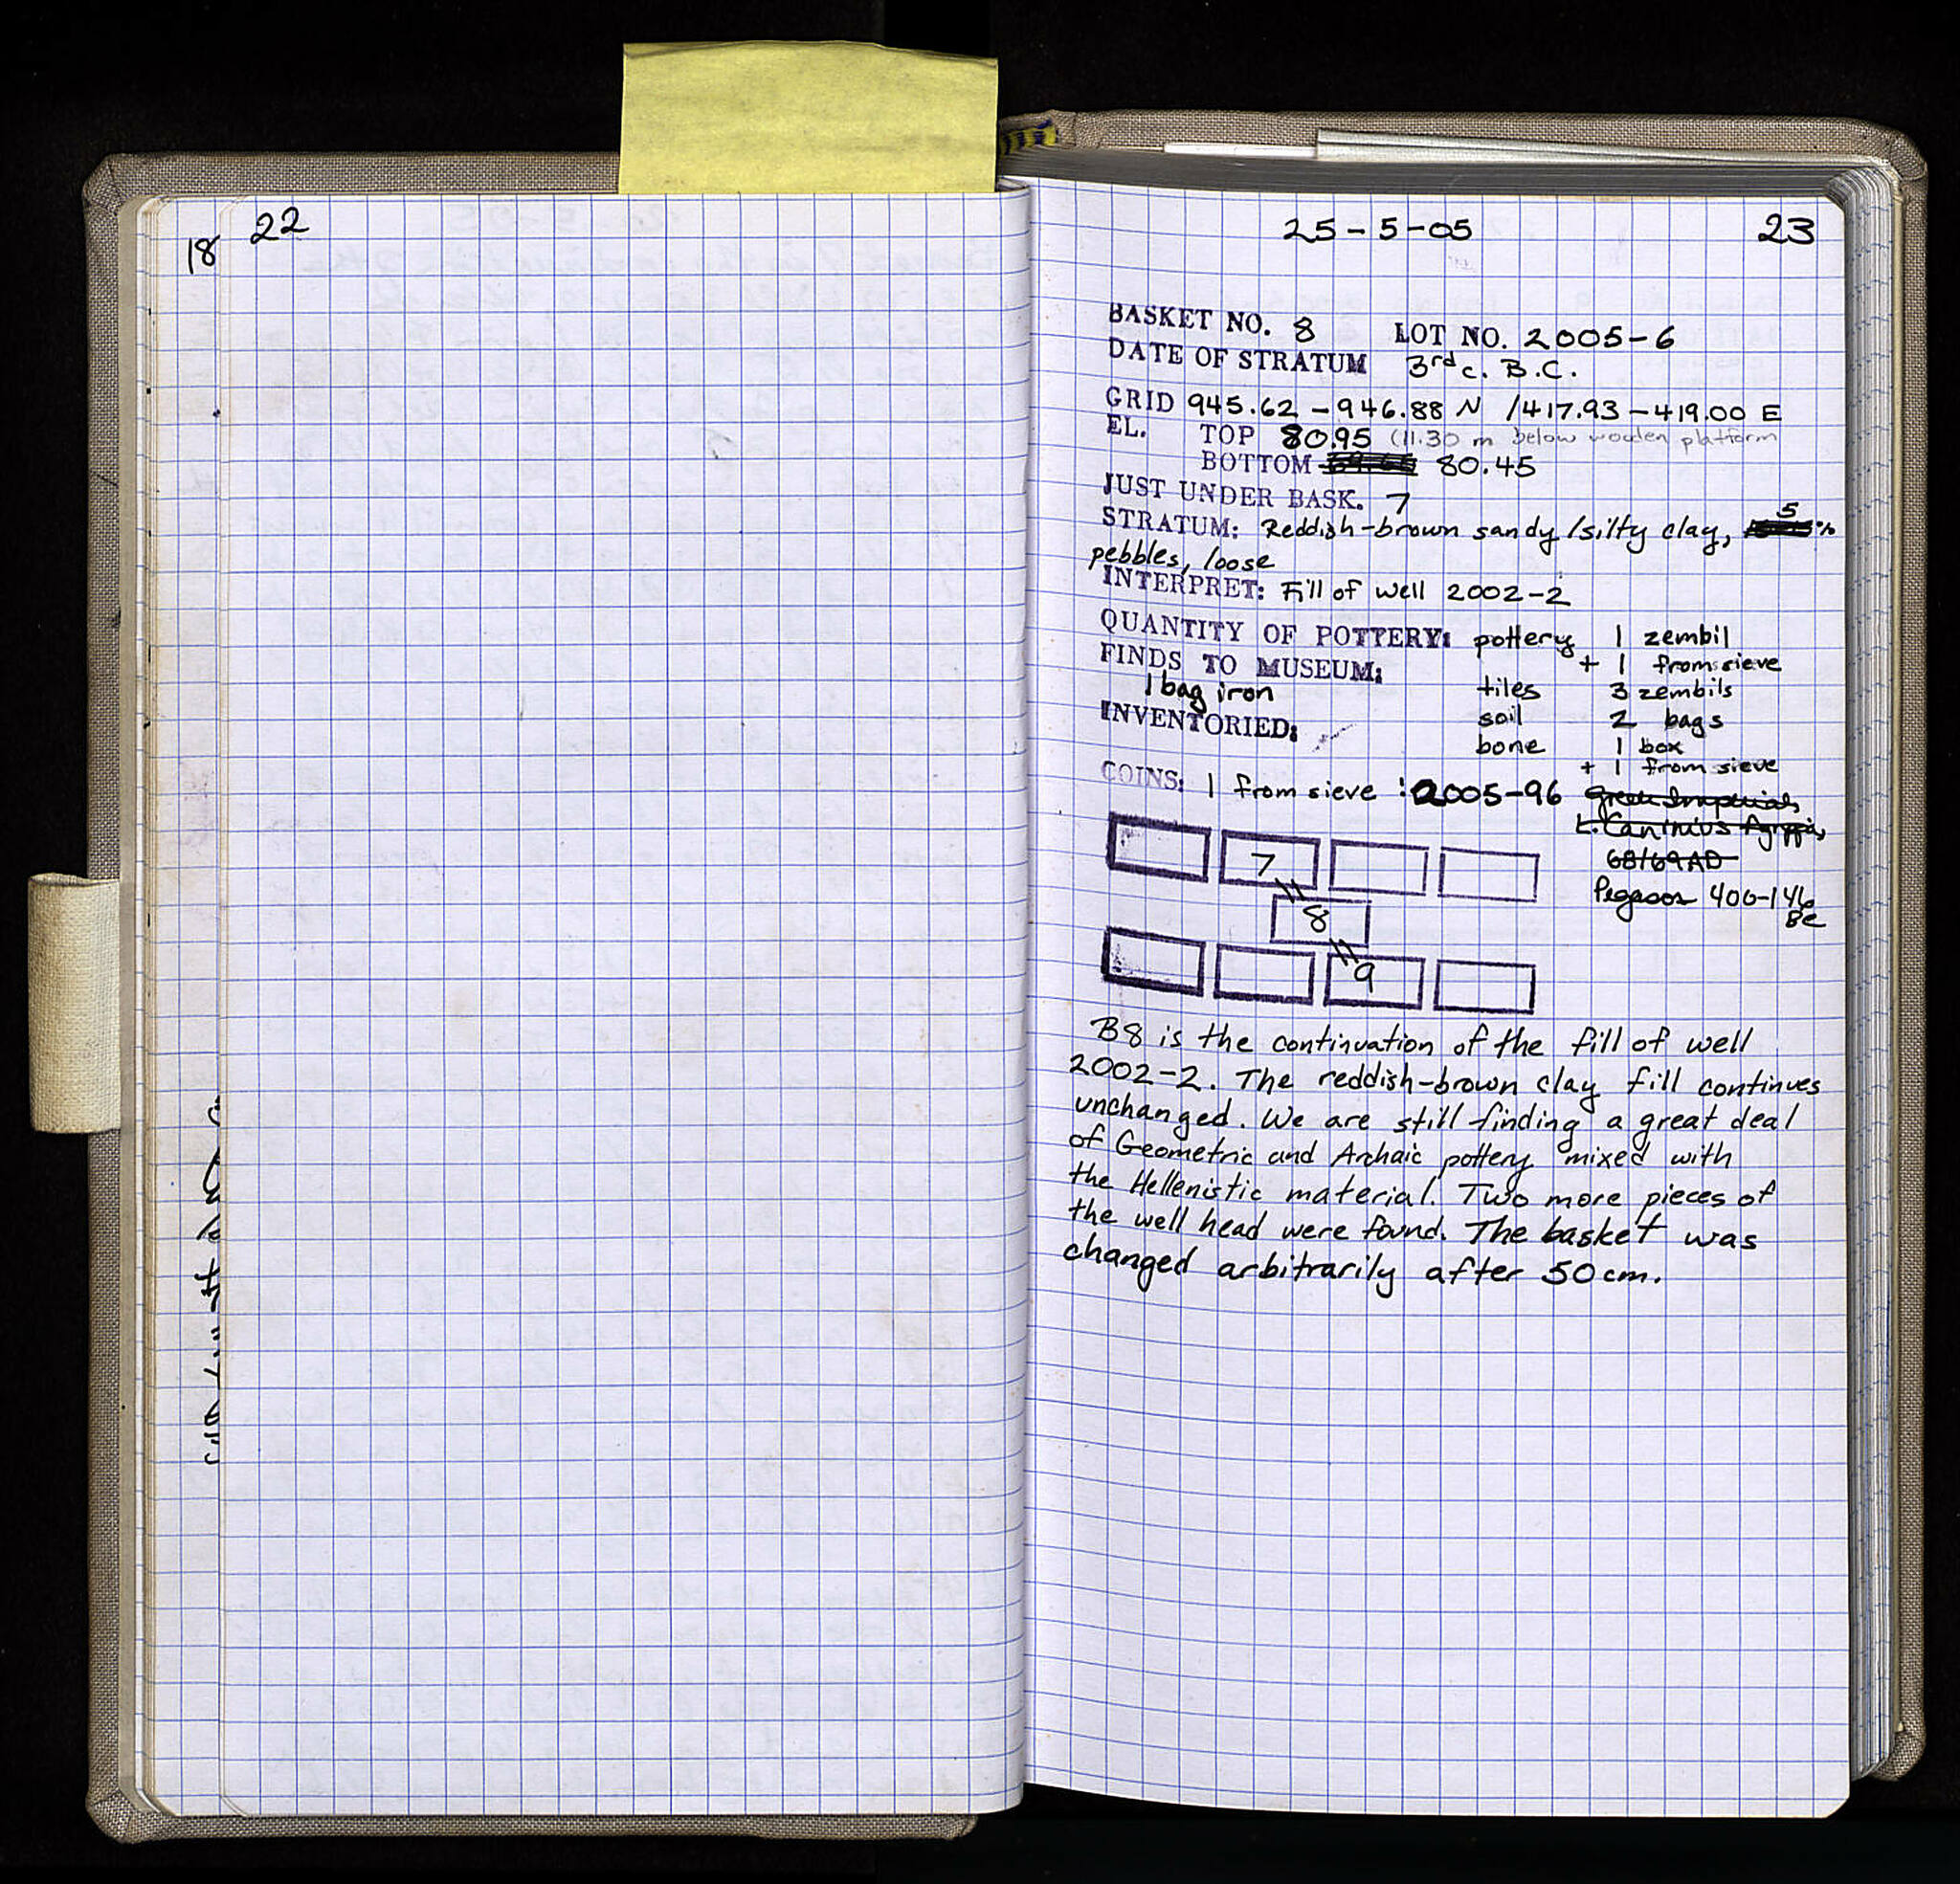 18
22
25-5-05
23
BASKET NO. 8 LOT NO. 2005-6
DATE OF STRATUM 3rd c. B.C.
GRID 945.62 - 946.88 N /417.93 - 419.00 E
EL. TOP 80.95 (11.30 m below wooden platform
BOTTOM 80.45
JUST UNDER BASK. 7
STRATUM: Reddish-brown sandy/silty clay, 5%
pebbles, loose
INTERPRET: Fill of well 2002-2
QUANTITY OF POTTERY: pottery 1 zembil
+ 1 from sieve
FINDS TO MUSEUM:
1 bag iron
tiles 3 zembils
INVENTORIED:
soil 2 bags
bone 1 box
+ 1 from sieve
COINS: 1 from sieve : 2005-96 Greek Imperial,
L. Caninius Agrippa,
68/69 AD
Pegasos 400-146
BC
7
8
9
B8 is the continuation of the fill of well
2002-2. The reddish-brown clay fill continues
unchanged. We are still finding a great deal
of Geometric and Archaic pottery mixed with
the Hellenistic material. Two more pieces of
the well head were found. The basket was
changed arbitrarily after 50 cm.